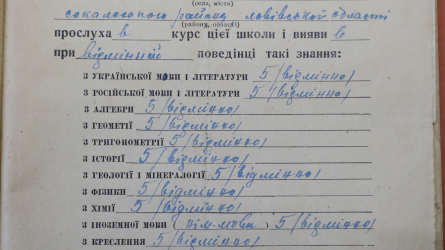 (села, міста)
сокальського району львівської області
(району, області)
прослуха в курс цієї школи і вияви в
при відмінній поведінці такі знання:
з української мови і літератури 5 /відмінно/
з російської мови і літератури 5 /відмінно/
з алгебри 5 /відмінно/
з геометії 5 /відмінно/
з тригонометрії 5 /відмінно/
з історії 5 /відмінно/
з геології і мінералогії 5 /відмінно/
з фізики 5 /відмінно/
з хімії 5 /відмінно/
з іноземної мови (нім. мова) 5 /відмінно/
з креслення 5 /відмінно/